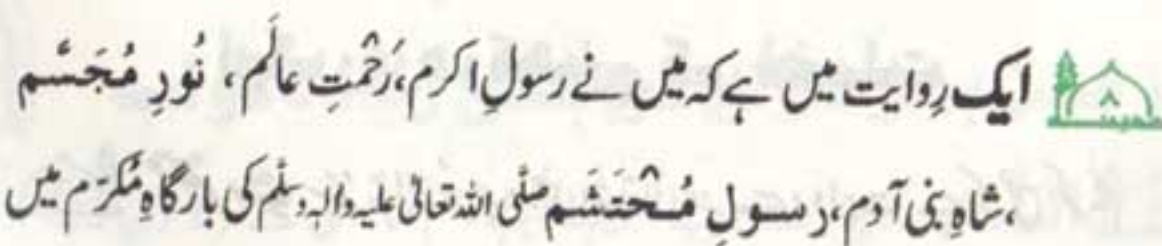 ۸ ایک رِوایت میں ہے کہ میں نے رسولِ اکرم، رَحْمتِ عالَم، نُورِ مُجَسَّم
،شاہِ بنی آدم، رسولِ مُحْتَشَم صلَّی اللہ تعالیٰ علیہ واٰلہٖ وسلَّم کی بارگاہِ مُکرَّم میں